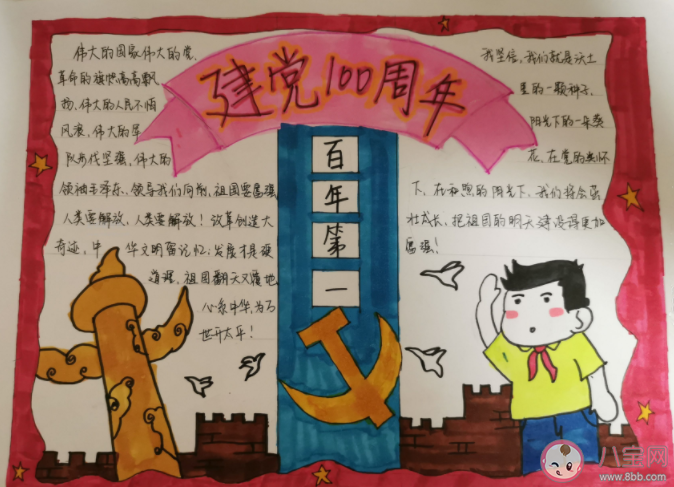 建党100周年
百
年
第
一
伟大的国家伟大的党,
革命的旗帜高高飘
扬、伟大的人民不怕
风浪、伟大的军
队步伐坚强、伟大的
领袖毛泽东、领导我们向前,祖国要富强
人类要解放,人类要解放!改革创造大
奇迹,中华文明留记忆;发展才是硬
道理,祖国翻天又覆地
心系中华,为万
世开太平!
我坚信,我们就是沃土
里的一颗种子、
阳光下的一朵葵
花、在党的关怀
下、在和煦的阳光下,我们将会茁
壮成长,把祖国的明天建设得更加
富强!
八宝网
www.8bb.com